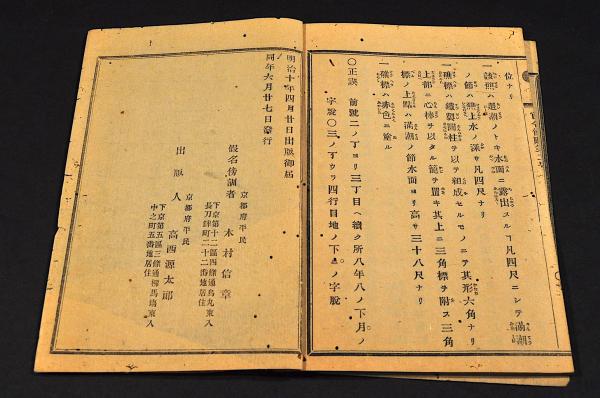 位ナリ
一該礁ハ退潮ノトキ水面ニ露出スルヿ凡四尺ニシテ満潮
ノ節ハ無上水ノ深サ凡四尺ナリ
一礁標ハ鐵製圓柱ヲ以テ組成セルモノニテ其形六角ナリ
上部ニ心棒ヲ以タル籠ヲ置キ其上ニ三角標ヲ附ス三角
標ノ上點ハ満潮ノ節水面ヨリ高サ三十八尺ナリ
一礁標ハ赤色ニ塗ル
〇正誤 前號二ノ丁ヨリ三丁目ヘ續ク所八年八ノ下月ノ
字脱〇三ノ丁ウラ四行目地ノ下ノ字脱
明治十年四月廿日出版御届
同年六月廿七日發行
京都府平民
假名傍訓者 木村信章
下京第十二區四條通烏丸東入
長刀鉾町二十二番地居住
京都府平民
出版人 高西源太郎
下京第五區三條通柳馬塲東入
中之町五番地居住